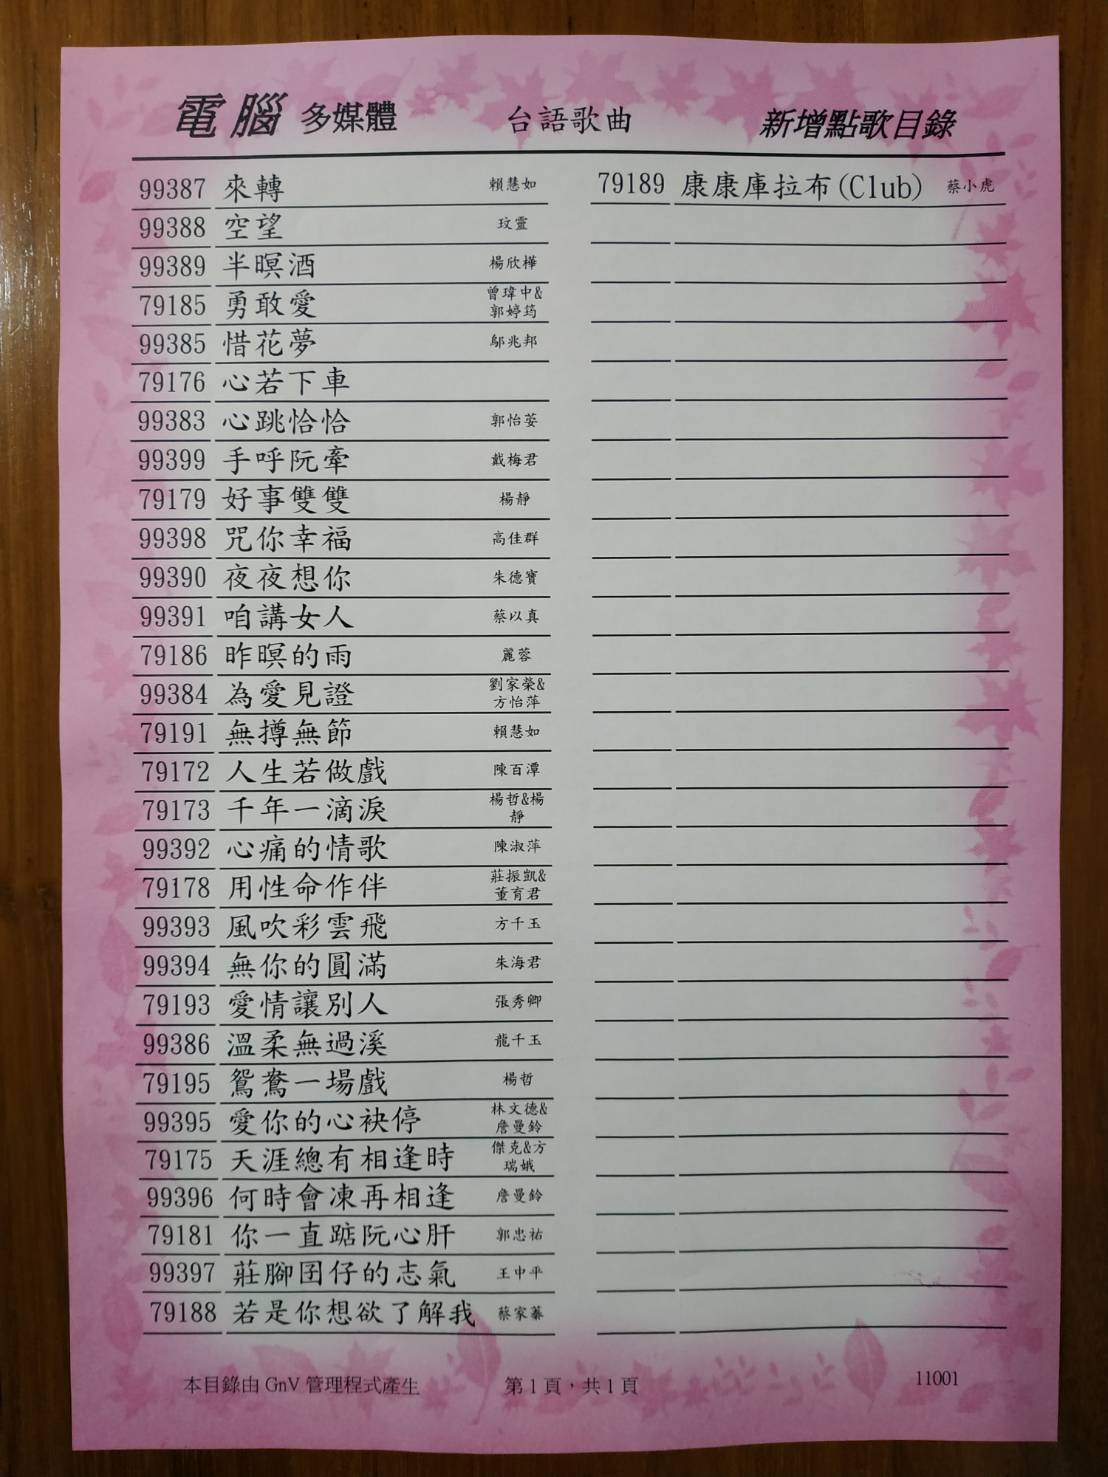 電腦 多媒體 台語歌曲 新增點歌目錄
99387 來轉 賴慧如
99388 空望 玟靈
99389 半暝酒 楊欣樺
79185 勇敢愛 曾瑋中&
郭婷筠
99385 惜花夢 鄔兆邦
79176 心若下車
99383 心跳恰恰 郭怡菱
99399 手呼阮牽 戴梅君
79179 好事雙雙 楊靜
99398 咒你幸福 高佳群
99390 夜夜想你 朱德寶
99391 咱講女人 蔡以真
79186 昨暝的雨 麗蓉
99384 為愛見證 劉家榮&
方怡萍
79191 無撙無節 賴慧如
79172 人生若做戲 陳百潭
79173 千年一滴淚 楊哲&楊
靜
99392 心痛的情歌 陳淑萍
79178 用性命作伴 莊振凱&
董育君
99393 風吹彩雲飛 方千玉
99394 無你的圓滿 朱海君
79193 愛情讓別人 張秀卿
99386 溫柔無過溪 龍千玉
79195 鴛鴦一場戲 楊哲
99395 愛你的心袂停 林文德&
詹曼鈴
79175 天涯總有相逢時 傑克&方
瑞娥
99396 何時會凍再相逢 詹曼鈴
79181 你一直踮阮心肝 郭忠祐
99397 莊腳囝仔的志氣 王中平
79188 若是你想欲了解我 蔡家蓁
79189 康康庫拉布(Club) 蔡小虎
本目錄由 GnV 管理程式產生 第1頁，共1頁 11001